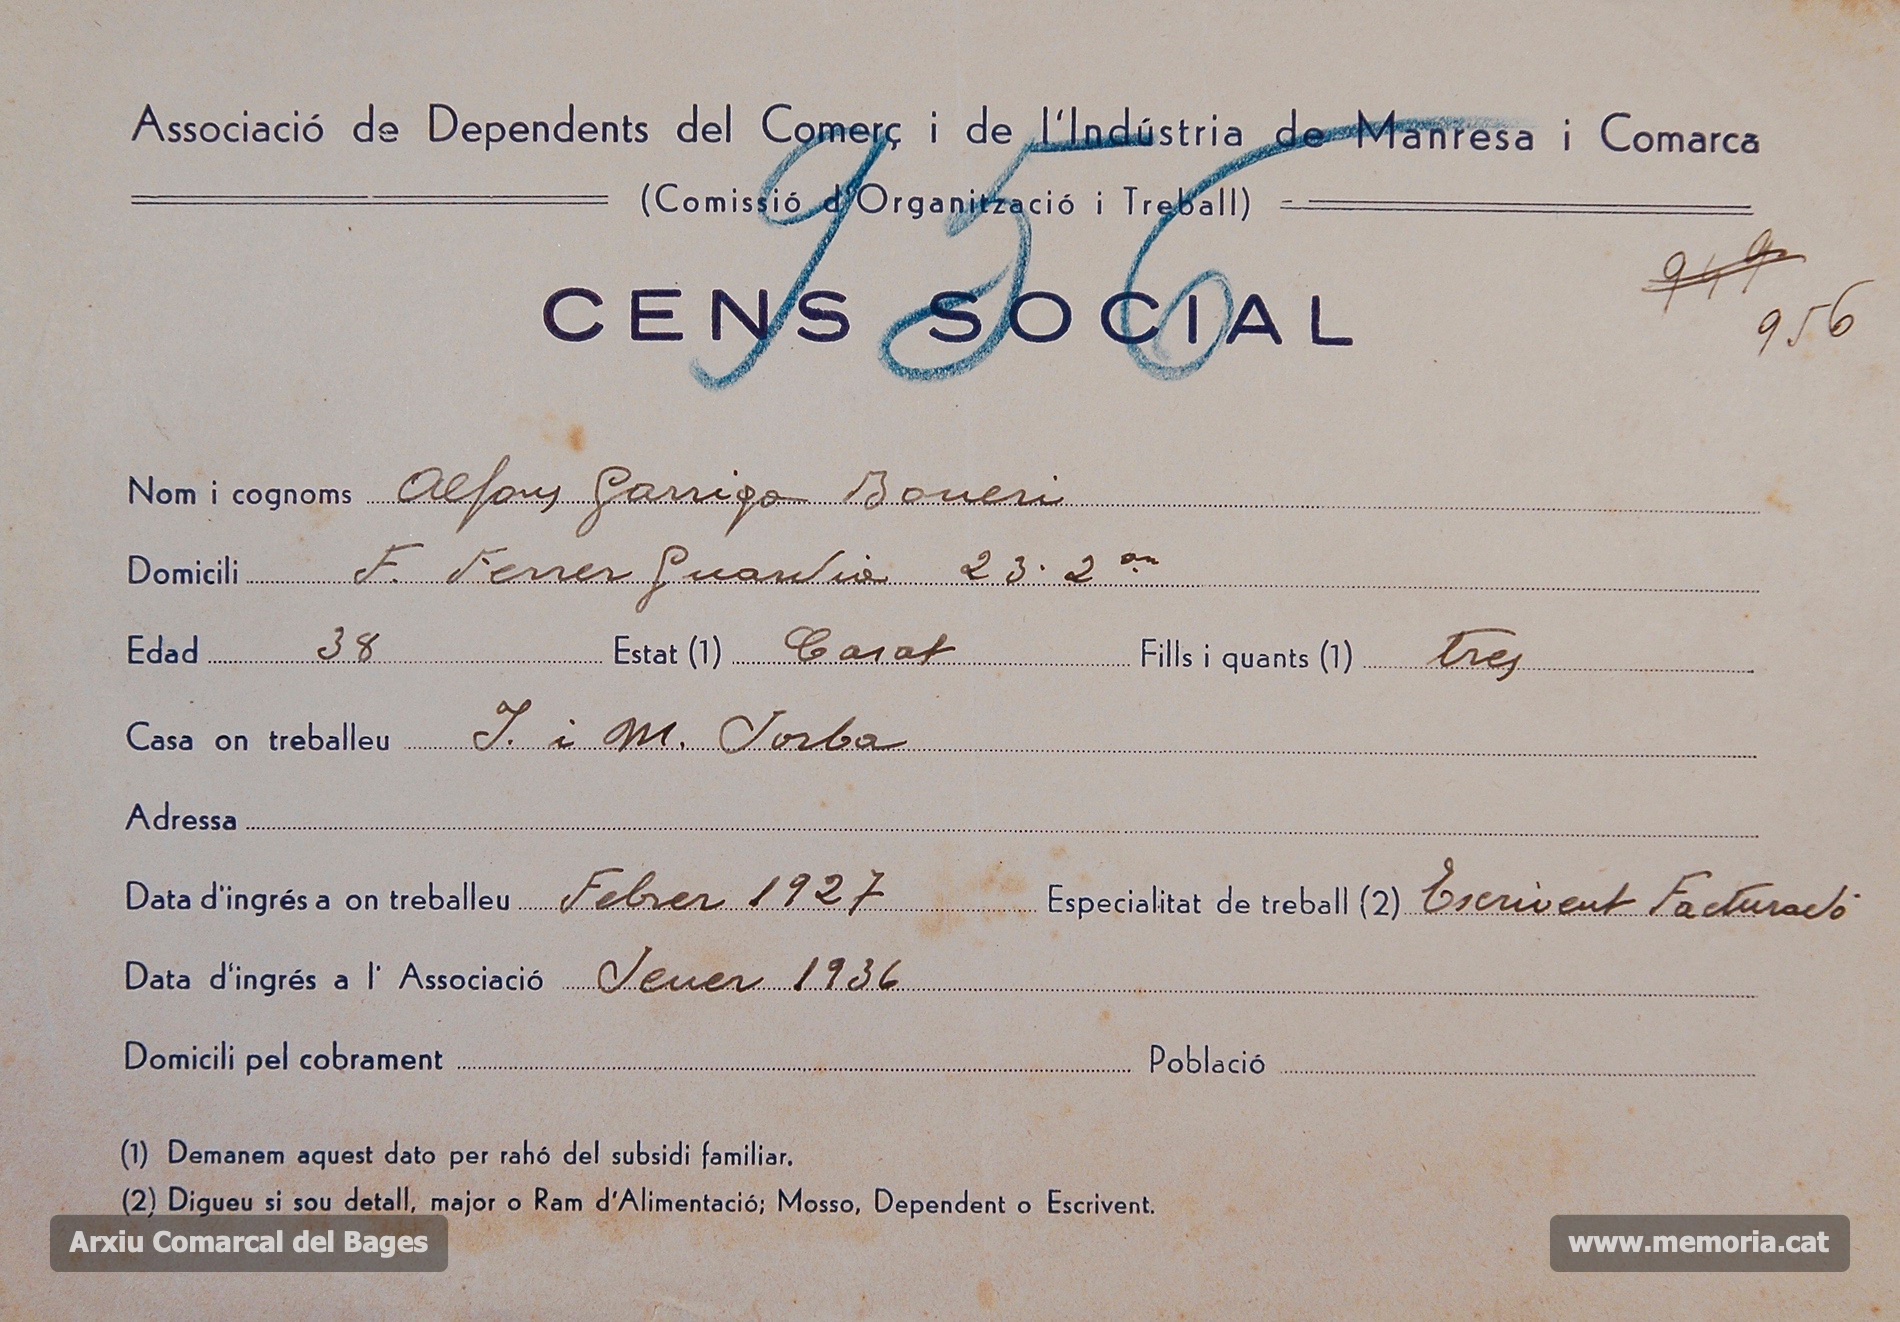 Associació de Dependents del Comerç i de l'Indústria de Manresa i Comarca
(Comissió d'Organització i Treball)
956
CENS SOCIAL
956
Nom i cognoms Alfons Garriga
Domicili F. Ferrer Guardia 23-2on
Edad 38 Estat (1) Casat Fills i quants (1) tres
Casa on treballeu J. i M. Jorba
Adressa
Data d'ingrés a on treballeu Febrer 1927 Especialitat de treball (2) Escrivent Facturació
Data d'ingrés a l' Associació Jener 1936
Domicili pel cobrament Població
(1) Demanem aquest dato per rahó del subsidi familiar.
(2) Digueu si sou detall, major o Ram d'Alimentació; Mosso, Dependent o Escrivent.
Arxiu Comarcal del Bages
www.memoria.cat